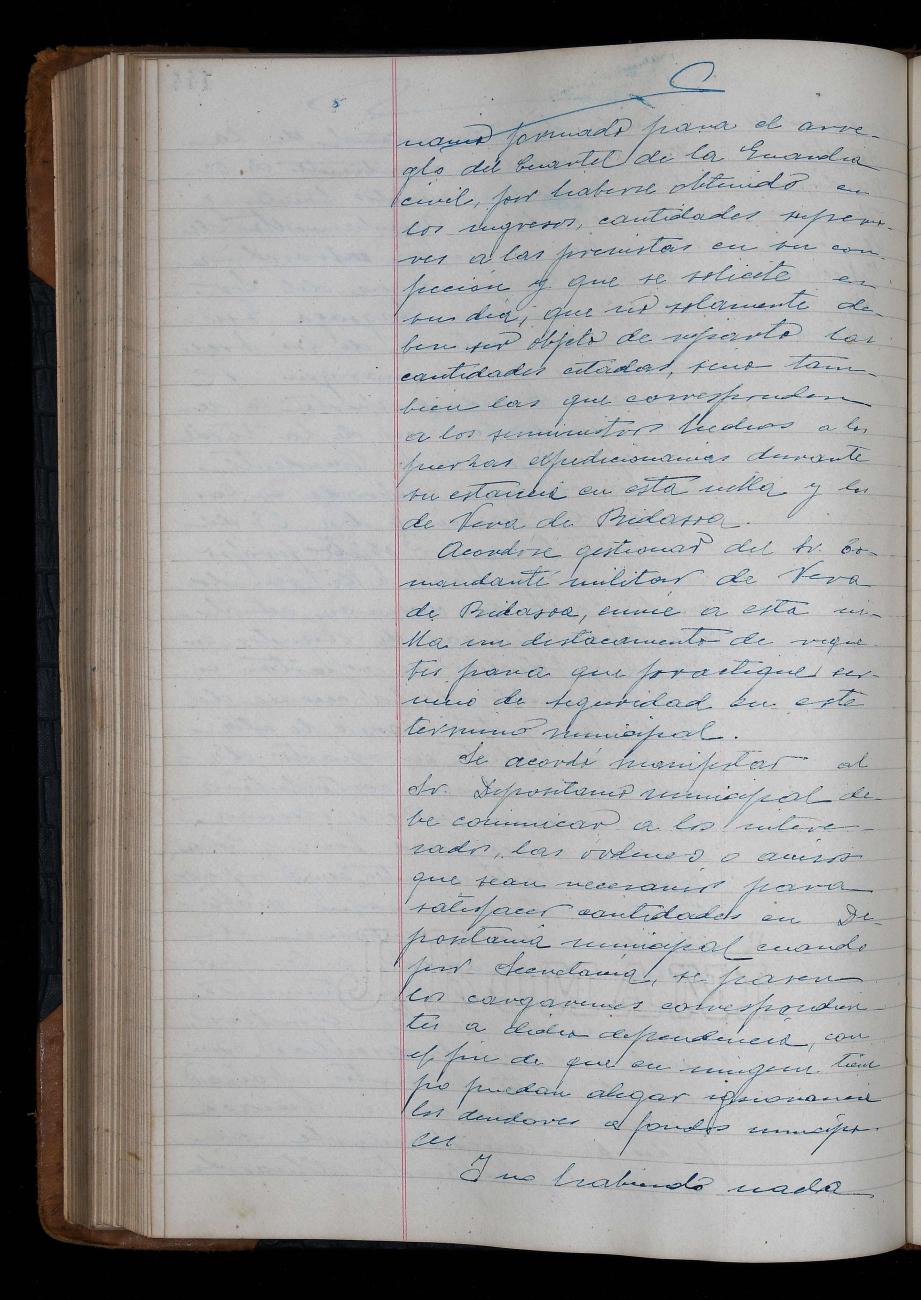 nario formado para el arre-
glo del Cuartel de la Guardia
civil, por haberse obtenido en
los ingresos, cantidades superio-
res a las previstas en su con-
fección y que se solicite en
su dia, que no solamente de-
ben ser objeto de reparto las
cantidades citadas, sino tam-
bien las que corresponden
a los suministros hechos a las
fuerzas expedicionarias durante
su estancia en esta villa y la
de Vera de Bidasoa.
Acordose gestionar del Sr. Co-
mandante militar de Vera
de Bidasoa, envie a esta vi-
lla un destacamento de reque-
tes para que practique ser-
vicio de seguridad en este
termino municipal.
Se acordó manifestar al
Sr. Depositario municipal de-
be comunicar a los intere-
sados, las órdenes o avisos
que sean necesarios para
satisfacer cantidades en De-
positaria municipal cuando
por Secretaria, se pasen
los cargaremes correspondien-
tes a dicha dependencia, con
el fin de que en ningun tiem-
po puedan alegar ignorancia
los deudores a fondos municipa-
les.
Y no habiendo nada